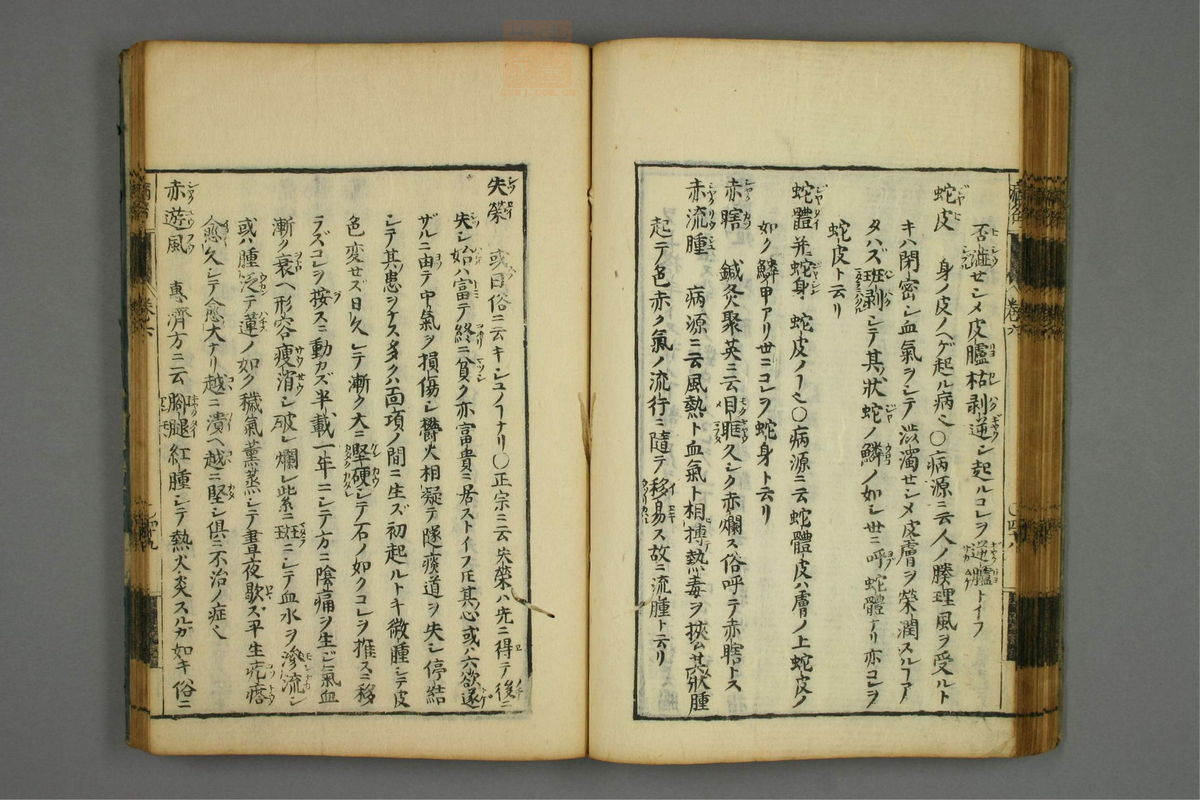 否澁セシメ皮臚枯剥逆シ起ルコレヲ逆臚トイフ
蛇皮 身ノ皮ノヘゲ起ル病ヘ〇病源ニ云人ノ腠理風ヲ受ルト
キハ閉密シ血氣ヲシテ渋濁セシメ皮膚ヲ榮潤スルフア
タハズ斑剥シテ其状蛇ノ鱗ノ如シ世ニ呼蛇體ナリ亦コレヲ
蛇皮ト云リ
蛇體 并蛇身 蛇皮ノ〇病源ニ云蛇體皮ハ膚ノ上蛇皮ノ
如ク鱗甲アリ世ニコレヲ蛇身ト云リ
赤瞎 鍼灸聚英ニ云目眶久シク赤爛ス俗呼テ赤瞎トス
赤流腫 病源ニ云風熱ト血氣ト相搏熱毒ヲ挾ム其状腫
起テ色赤ク氣ノ流行ニ隨テ移易ス故ニ流腫ト云リ
失榮 或曰俗ニ云キシユノナリ〇正宗ニ云失榮ハ先ニ得テ後ニ
失シ始ハ富テ終ニ貧ク亦富貴ニ居ストイフ其心或ハ六欲遂
ザルニ由テ中氣ヲ損傷シ欝火相凝テ隧痰道ヲ失シ停結
シテ其患ヲナス多クハ面項ノ間ニ生ズ初起ルトキ微腫シテ皮
色変セズ日久シテ漸ク大ニ堅硬シテ石ノ如クコレヲ推スニ移
ラズコレヲ按スニ動カズ半載一年ニシテ方ニ陰痛ヲ生ジ氣血
漸ク衰ヘ形容瘦消シ破レ爛レ紫ニ斑ニシテ血水ヲ滲流シ
或ハ腫泛テ蓮ノ如ク穢氣薫蒸シテ晝夜歇ズ平生疙瘩
愈久シテ愈大ナリ越ニ潰ヘ越ニ堅シ倶ニ不治ノ症ヘ
赤遊風 專濟方ニ云脚腿紅腫シテ熱火炎スルガ如キ俗ニ
巻六
四十八
巻六
四十九